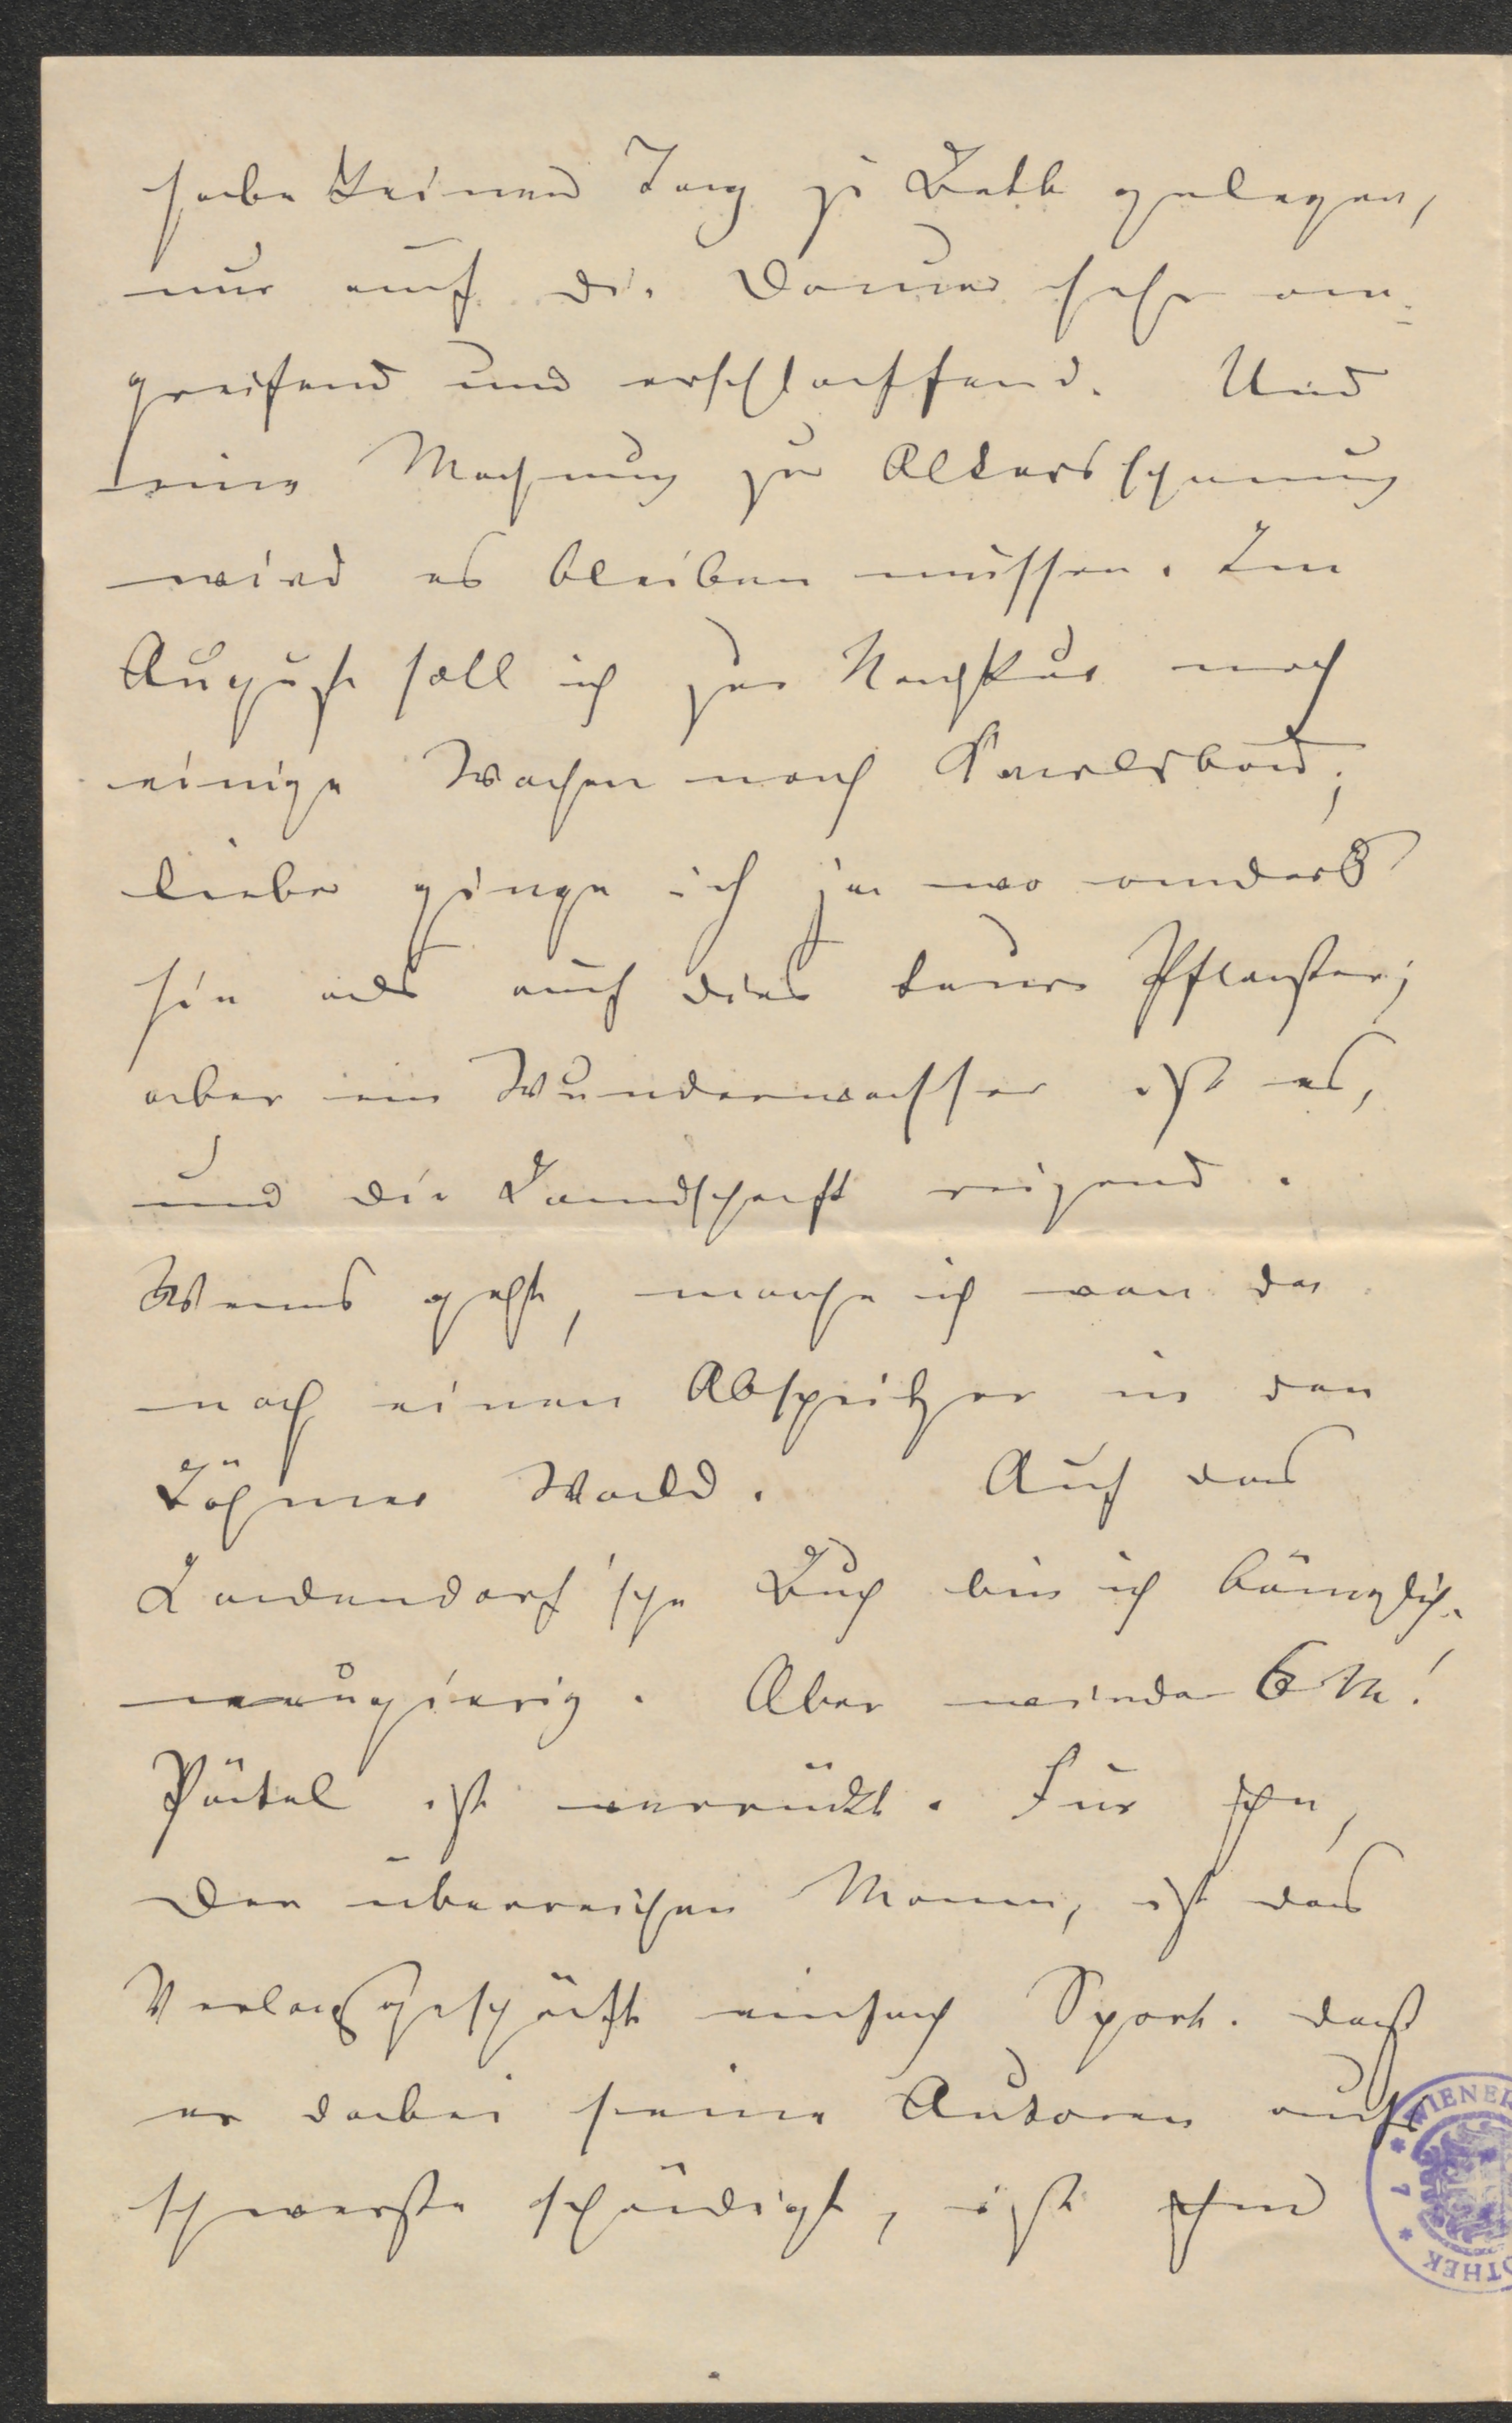 habe keinen Tag zu Bett gelegen,
nur auf die Dauer sehr an-
greifend und erschlaffend. Und
eine Mahnung zur Altersschonung
wird es bleiben müssen. Im
August soll ich zur Nachkur noch
einige Wochen nach Karlsbad;
lieber ginge ich ja wo anders
hin als auf dies teure Pflaster;
aber ein Wunderwasser ist es,
und die Landschaft reizend.
Wenns geht, mache ich von da
noch einen Abspritzer in den
Böhmer Wald. Auf das
Ladendorf'sche Buch bin ich bänglich-
neugierig. Aber wieder 6 M!
Pätel ist verrückt. Für ihn,
den überreichen Mann, ist das
Verlagsgeschäft einfach Sport. daß
er dabei seine Autoren aufs
schwerste schädigt, ist ihm
WIENER
OTHEK
7